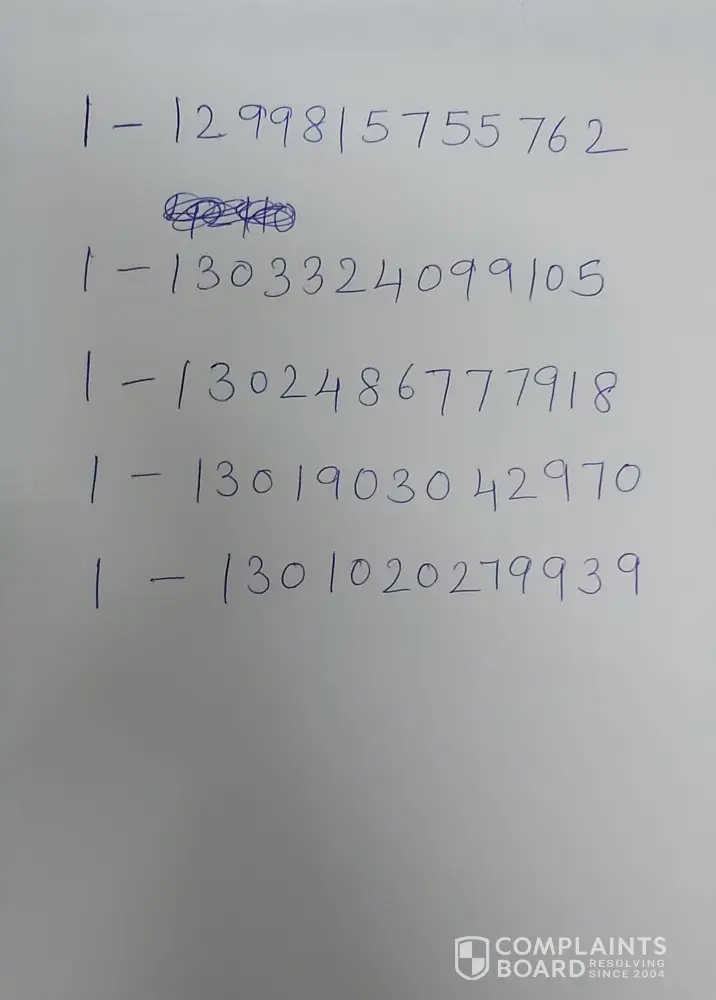 1 - 1299815755762
1 - 1303324099105
1 - 1302486777918
1 - 1301903042970
1 - 1301020279939
COMPLAINTS
BOARD RESOLVING
SINCE 2004